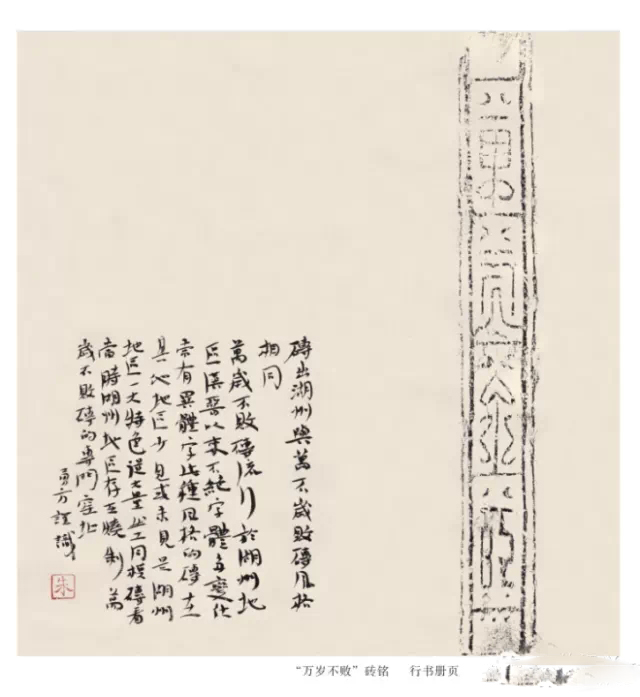 磚出湖州與萬不歲敗磚風格
相同
萬歲不敗磚流行於湖州地
區漢晉以來不絕字體多變化
常有異體字此種風格的磚在
其他地區少見或未見是湖州
地區一大特色從大量出土同模磚看
當時湖州地區存在燒制萬
歲不敗磚的專門窑址
勇方記識
朱
“万岁不败”砖铭 行书册页